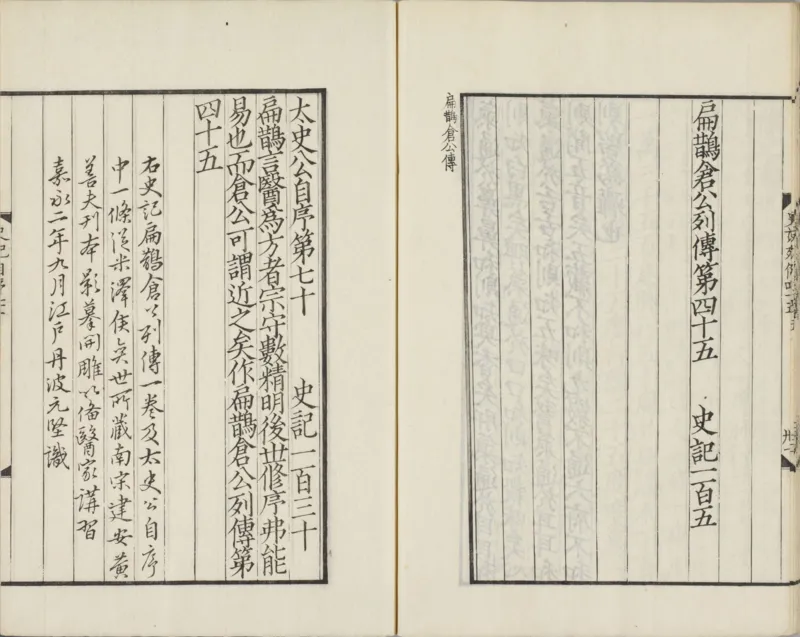 扁鵲倉公列傳第四十五　史記一百五
扁鵲倉公傳
太史公自序第七十　史記一百三十
扁鵲言醫為方者宗守數精明後世脩序弗能
易也而倉公可謂近之矣作扁鵲倉公列傳第
四十五
右史記扁鵲倉公列傳一卷及太史公自序
中一條從米澤侯奕世所藏南宋建安黃
善夫刊本影摹開雕以備醫家講習
嘉永二年九月江戶丹波元堅識